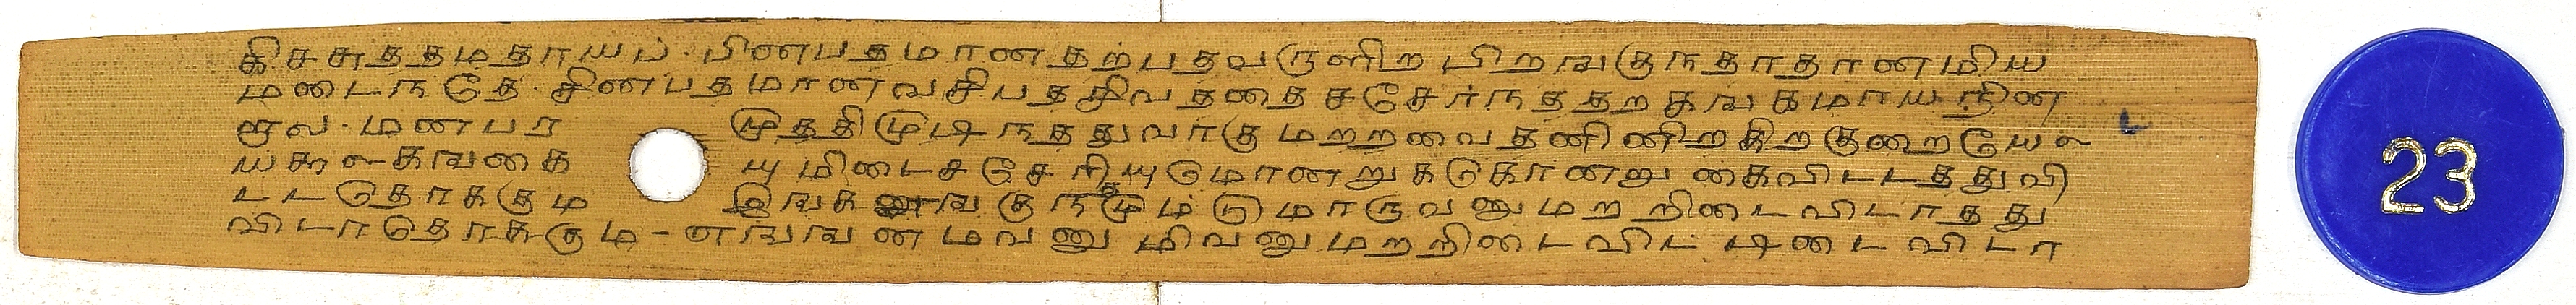 கிசசுததமதாயப. பினபதமானதறபதவருளிற பிறஙகுநதாதானமிய
மடைநதே. சினபதமானவசிபததிவதனைச சேரநததறகஙகமாய நின
றல. மனபர முததிமுடிநததுவாகு மறறவைதனினிறகிற குறையே உ
யக௨ உ கஙகை யு மிடைச சேரியுமொனறு க கொனறு கைவிடடதது வி
டடதொககும இஙகஙகுநமும டுமாருவனுமறறிடைவிடாதது
விடாதொககும - எஙஙனமவனு மிவனுமறறிடைவிடடிடை விடா
23